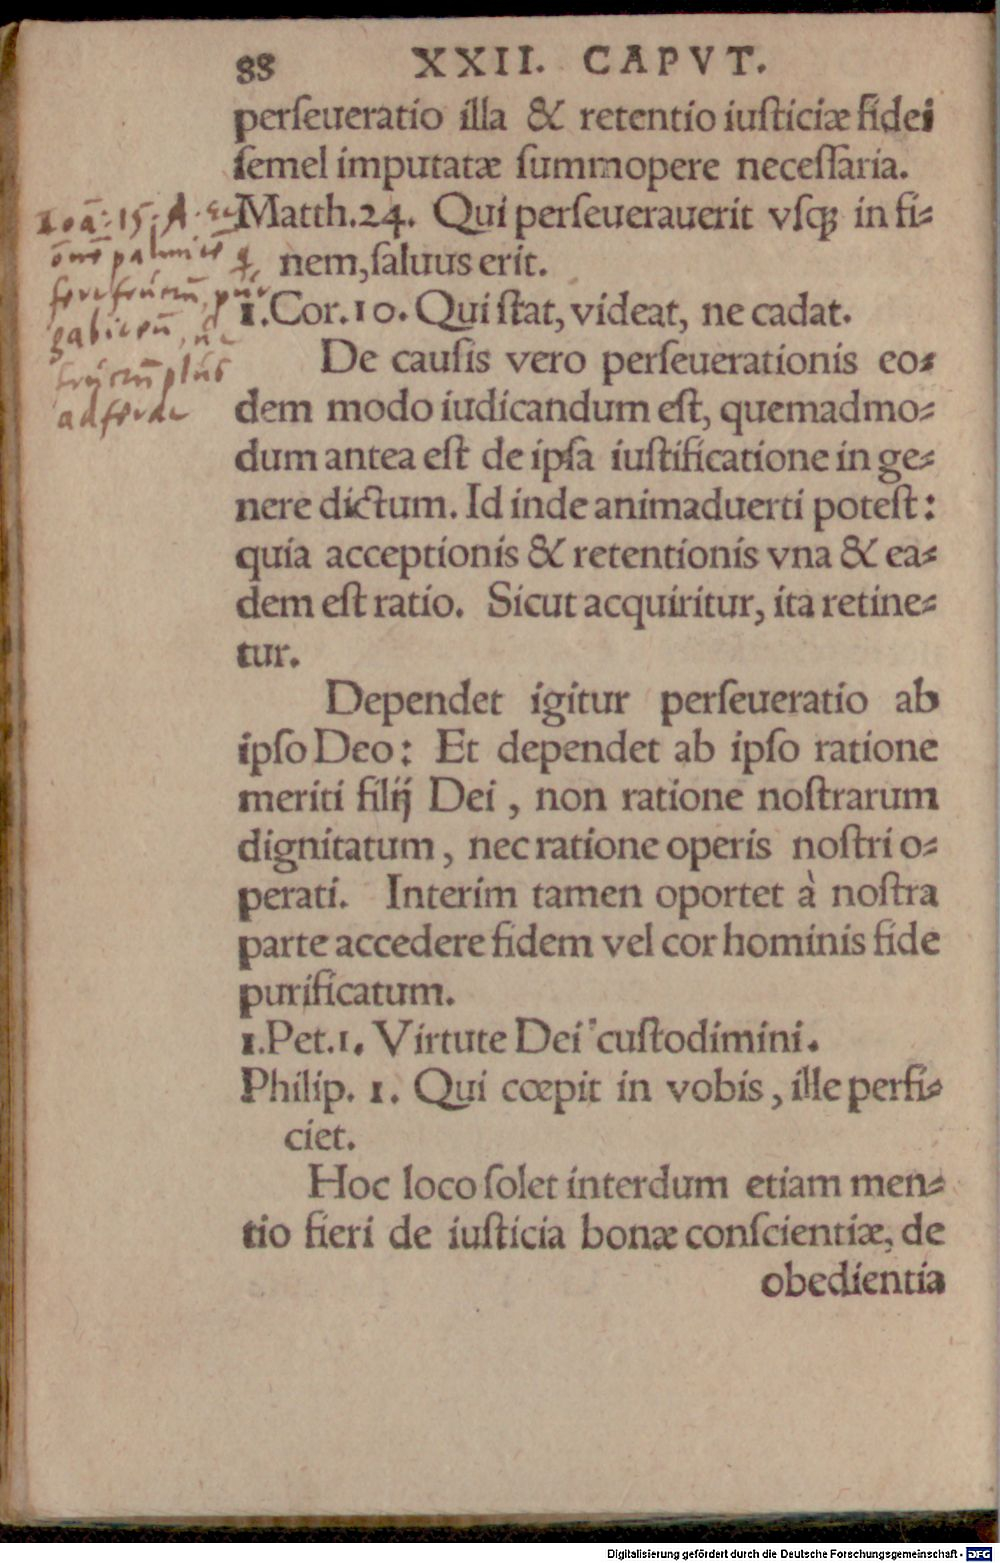 88 XXII. CAPVT.
perſeueratio illa & retentio iuſticiæ fidei
ſemel imputatæ ſummopere neceſſaria.
Matth.24. Qui perſeuerauerit vſqꝫ in fi⸗
nem, ſaluus erit.
1.Cor.10. Qui ſtat, videat, ne cadat.
De cauſis vero perſeuerationis eo⸗
dem modo iudicandum eſt, quemadmo⸗
dum antea eſt de ipſa iuſtificatione in ge⸗
nere dictum. Id inde animaduerti poteſt:
quia acceptionis & retentionis vna & ea⸗
dem eſt ratio. Sicut acquiritur, ita retine⸗
tur.
Dependet igitur perſeueratio ab
ipſo Deo: Et dependet ab ipſo ratione
meriti filij Dei, non ratione noſtrarum
dignitatum, nec ratione operis noſtri o⸗
perati. Interim tamen oportet à noſtra
parte accedere fidem vel cor hominis fide
purificatum.
1.Pet.1. Virtute Dei cuſtodimini.
Philip. 1. Qui cœpit in vobis, ille perfi⸗
ciet.
Hoc loco ſolet interdum etiam men⸗
tio fieri de iuſticia bonæ conſcientiæ, de
obedientia
Ioā: 15. A.
ōnē palmitē
fruictū plus
adferat
Digitalisierung gefördert durch die Deutsche Forschungsgemeinschaft - DFG